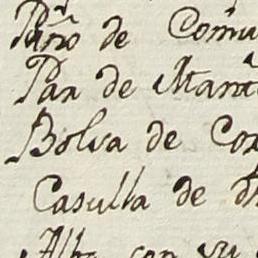 Paño de Comu
Pan de Man
Bolsa de Co
Casulla de d
Alba con su